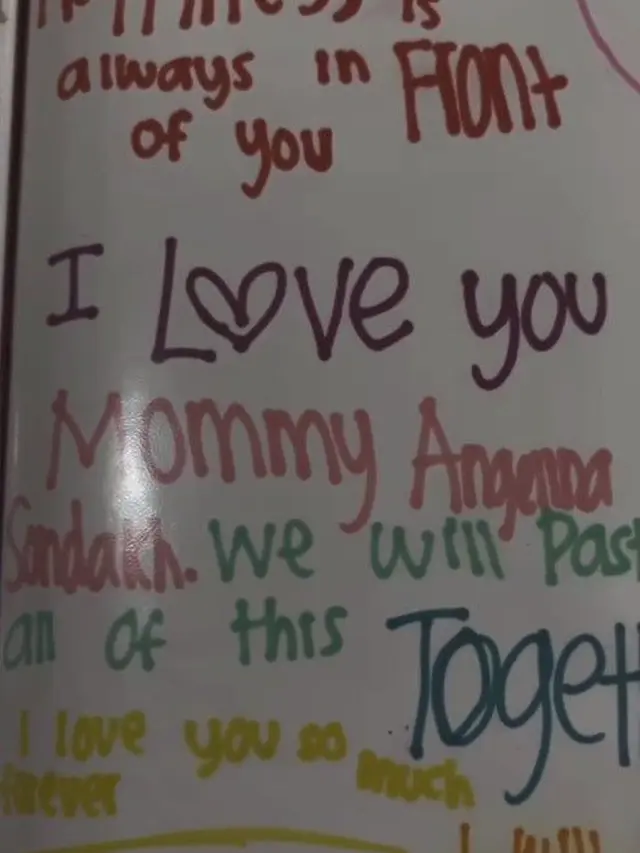 Happiness is
always in Front
of you
I Love you
Mommy Angenna
Sondakh. We will Past
all of this Togeth
I love you so much
forever
I will